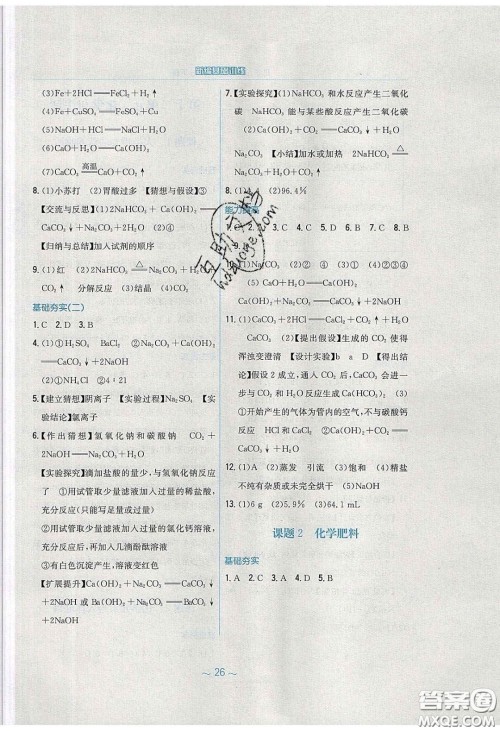 新编基础训练
(3)Fe+2HCl══FeCl₂+H₂↑
(4)Fe+CuSO₄══FeSO₄+Cu
(5)NaOH+HCl══NaCl+H₂O
(6)CaO+H₂O══Ca(OH)₂
(7)CaCO₃ 高温 ══ CaO+CO₂↑
8. (1)小苏打 (2)胃酸过多 【猜想与假设】③
【交流与反思】(1)2NaHCO₃+Ca(OH)₂══
CaCO₃↓+Na₂CO₃+2H₂O
【归纳与总结】加入试剂的顺序
9. (1)红 (2)2NaHCO₃ △ ══ Na₂CO₃+H₂O+
CO₂↑ 分解反应 (3)结晶 (4)CO₂
基础夯实(二)
1. C 2. D 3. B
4. (1)①H₂SO₄ BaCl₂ ②Na₂CO₃+Ca(OH)₂
══CaCO₃↓+2NaOH
(2)①NH₄Cl ②4∶21
5.【建立猜想】阴离子 【实验过程】Na₂SO₄ 【实
验结论】氯离子
6.【作出猜想】氢氧化钠和碳酸钠 CO₂+
2NaOH══Na₂CO₃+H₂O
【实验探究】滴加盐酸的量少，与氢氧化钠反应
了 ①用试管取少量滤液加入过量的稀盐酸，
充分反应(只能写足量或过量)
②用试管取少量滤液加入过量的氯化钙溶液，
充分反应后，再加入几滴酚酞溶液
③有白色沉淀产生，溶液变红色
【扩展提升】Ca(OH)₂+Na₂CO₃══CaCO₃↓+
2NaOH 或 Ba(OH)₂+Na₂CO₃══BaCO₃↓+
2NaOH
7.【实验探究】(1)NaHCO₃ 和水反应产生二氧化
碳 NaHCO₃ 能与某些酸反应产生二氧化碳
(2)Ca(OH)₂+CO₂══CaCO₃↓+H₂O
Na₂CO₃ 【小结】加水或加热 2NaHCO₃ △ ══
Na₂CO₃+H₂O+CO₂↑
8. (2)96.4%
(3)Na₂CO₃ (4)① (5)
CaO+H₂O══Ca(OH)₂ Na₂CO₃+Ca(OH)₂
══CaCO₃↓+2NaOH
11. (1)CaCO₃+2HCl══CaCl₂+H₂O+
CO₂↑ (2)【提出假设】生成的 CO₂ 使
浑浊变澄清 【设计实验】b a D 【得出结
论】假设 2 成立，通入 CO₂ 后，CaCO₃ 能进一
步与 CO₂ 反应，使浑浊变澄清 (3)
①开始产生的气体为管内的空气，不与澄清石
灰水反应 HCl 和 CaCl₂ ②变小
12. (1)A (2)蒸发 引流 (3)饱和 (4)精盐
不纯有杂质或未完全烘干 (5)NaOH
13. (1)6 g (2)5.9% (3)64.1 mL
课题 2 化学肥料
基础夯实
1. A 2. C 3. A 4. D 5. B
～ 26 ～
答案圈
MXQE.COM